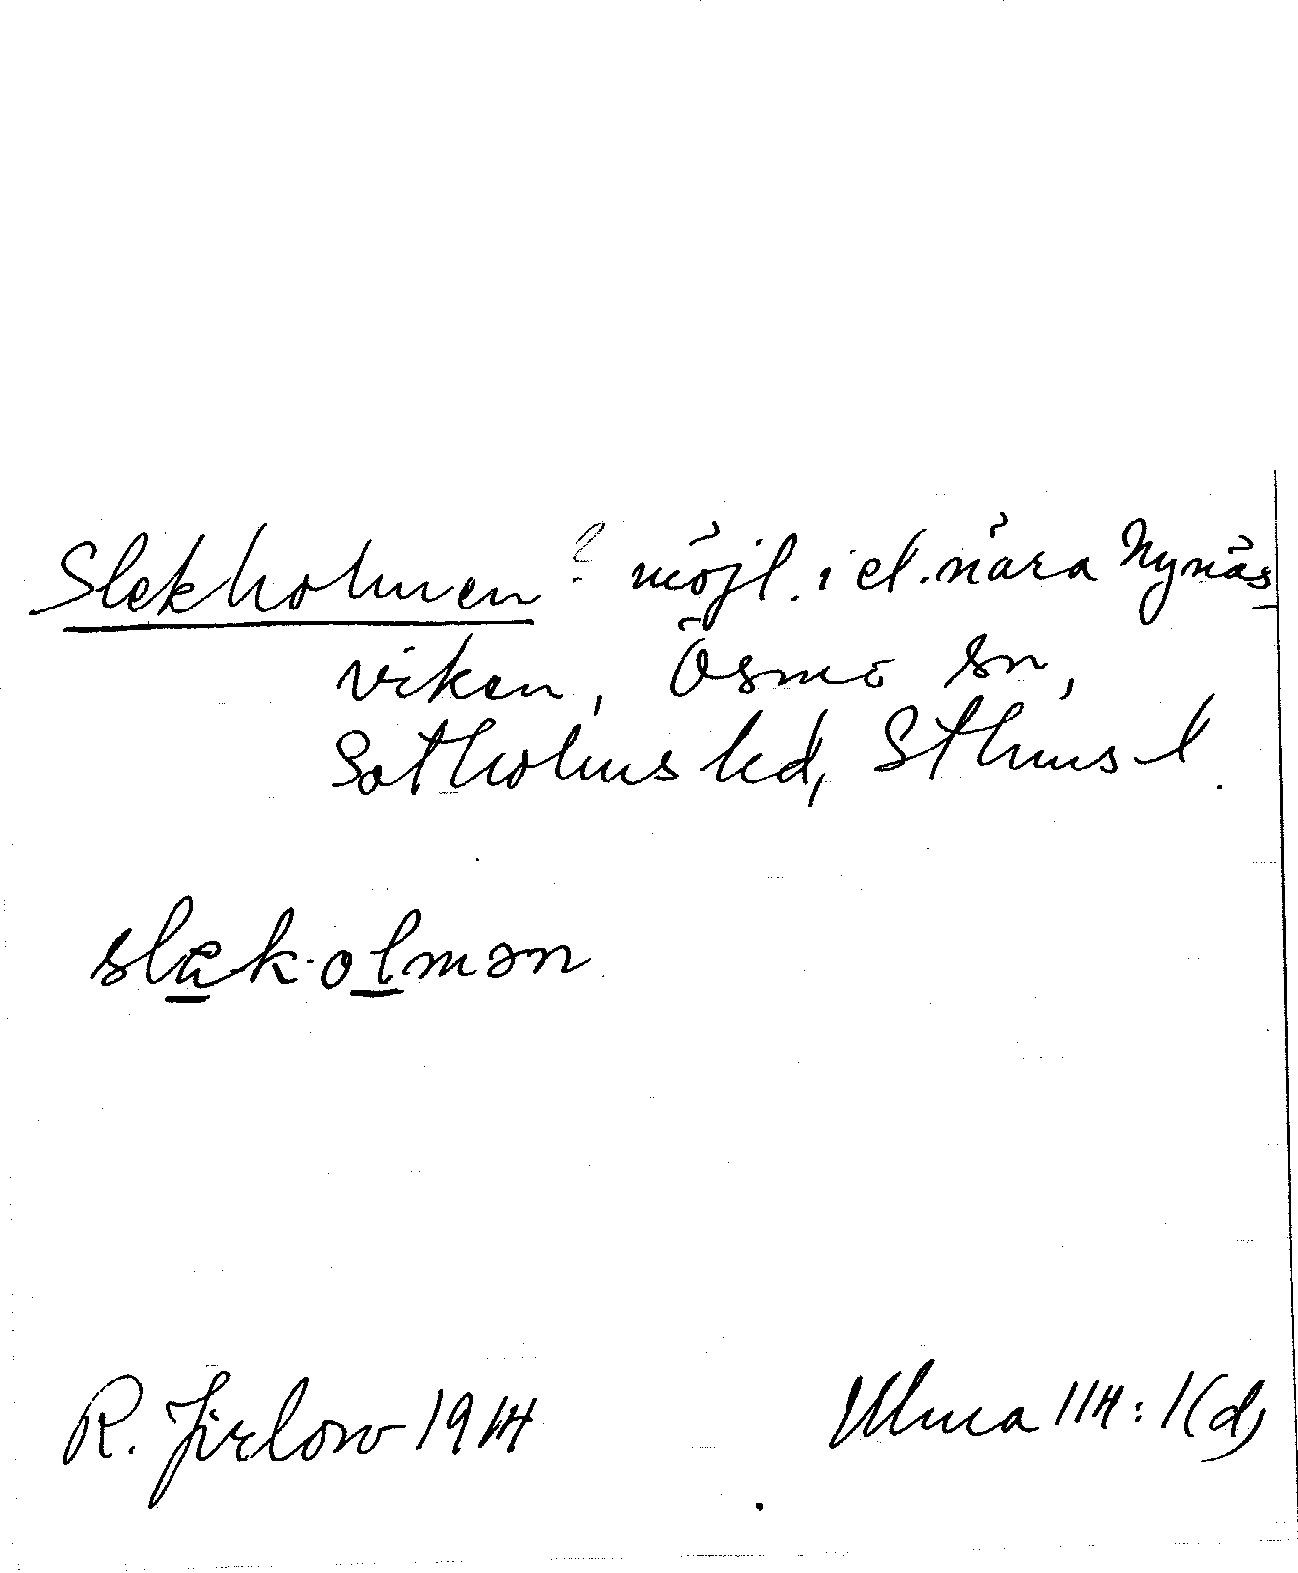 Slekholmen ? möjl. i el. nära Nynäs-
viken, Ösmo sn,
Sotholms hd, Sthms l.
slek·olmən
R. Jirlow 1914
Ulma 114:1(d)